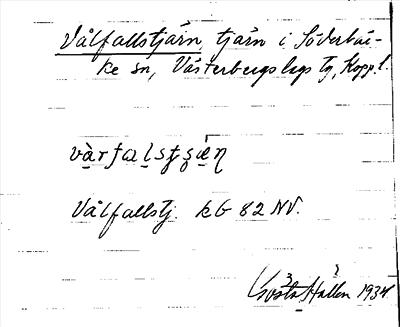 Vålfallstjärn, tjärn i Söderbär-
ke sn, Västerbergslags tg, Kopp. l.
vàrfalstʂæ̣ɳ
Vålfallstj. kG 82 NV.
Gösta Hallen 1934